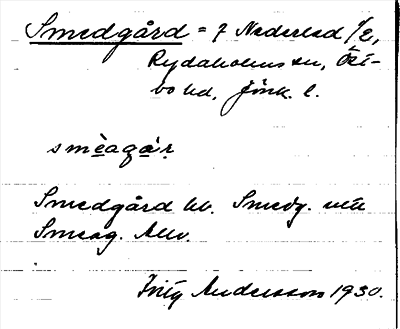 Smedgård = 7 Nederled 1/2,
Rydaholms sn, Öst-
bo hd, Jönk. l.
smèagàr
Smedgård bb. Smedg.
Smeag. Allm.
Andersson 1930.